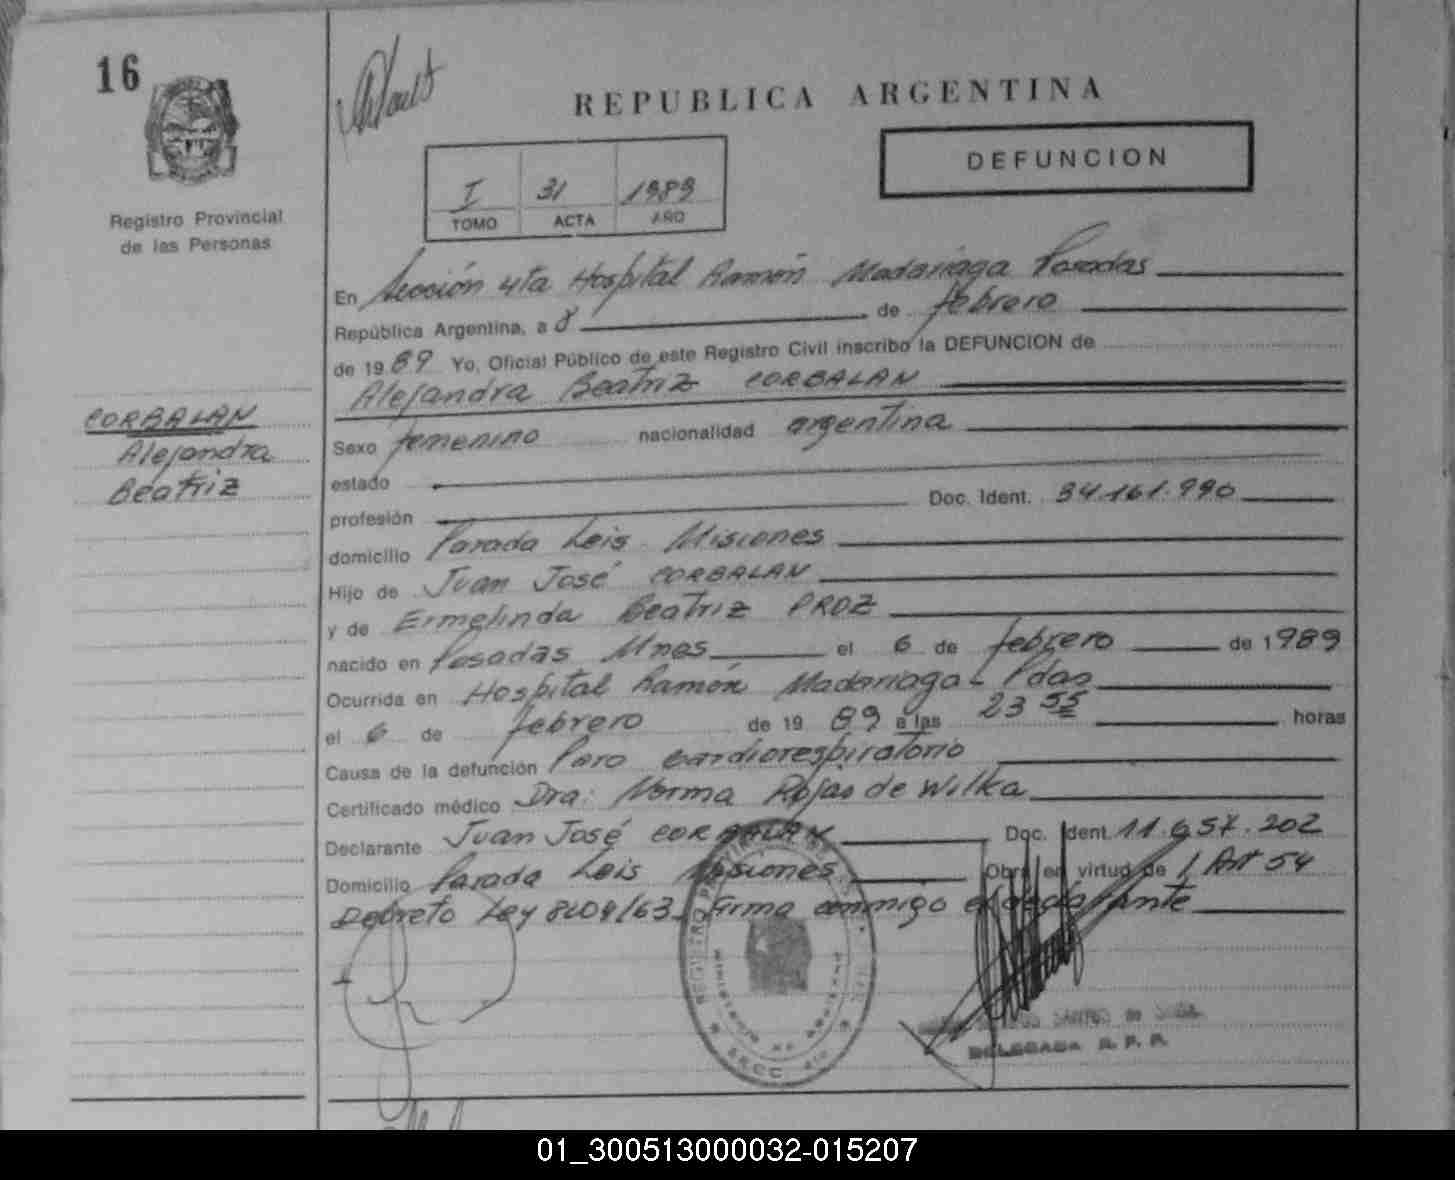 16
REPUBLICA ARGENTINA
DEFUNCION
I 31 1989
TOMO ACTA AÑO
Registro Provincial
de las Personas
En Sección 4ta Hospital Ramón Madariaga Posadas
República Argentina, a 8 de febrero
de 1989 Yo, Oficial Público de este Registro Civil inscribo la DEFUNCION de
Alejandra Beatriz CORBALAN
CORBALAN
Alejandra
Beatriz
Sexo femenino nacionalidad argentina
estado
profesión Doc. Ident. 34.161.990
domicilio Parada Leis Misiones
Hijo de Juan José CORBALAN
y de Ermelinda Beatriz PROZ
nacido en Posadas Mnes el 6 de febrero de 1989
Ocurrida en Hospital Ramón Madariaga - Pdas
el 6 de febrero de 1989 a las 23 55 horas
Causa de la defunción Paro cardiorespiratorio
Certificado médico Dra: Norma Rojas de Wilka
Declarante Juan José CORBALAN Doc. Ident. 11.657.202
Domicilio Parada Leis Misiones Obra en virtud de l Art 54
Decreto Ley 8204/63. Firma conmigo el declarante
REGISTRO PROVINCIAL DE LAS
MINISTERIO DE GOBIERNO
SANTOS de
DELEGADA R. P. P.
01_300513000032-015207